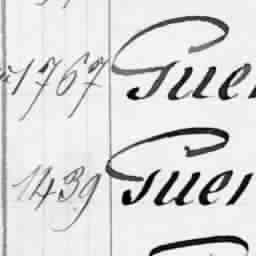 1767 Guer
1439 Guer